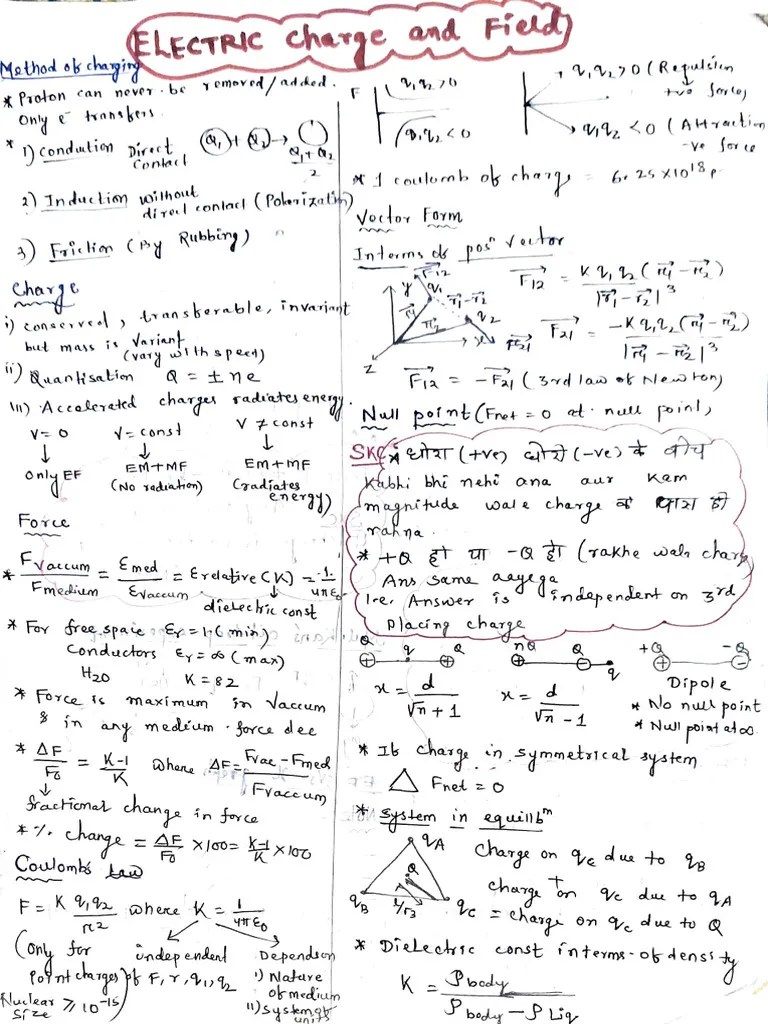 ELECTRIC Charge and Field
Method of charging
* Proton can never be removed/added.
Only e⁻ transfers.
* 1) Condution Direct Contact (Q₁) + (Q₂) → ◯ Q₁+Q₂/2
2) Induction without
direct contact (Polarization)
3) Friction (By Rubbing)
Charge
i) conserved, transferable, invariant
but mass is variant
(vary with speed)
ii) Quantisation Q = ± ne
iii) Accelerated charges radiates energy.
V = 0 V = const V ≠ const
↓ ↓ ↓
only EF EM+MF EM+MF
(No radiation) (radiates
energy)
Force
* Fvaccum/Fmedium = Emed/Evaccum = Erelative (K) = 1/4πε₀
dielectric const
* For free space εr = 1 (min)
Conductors εr = ∞ (max)
H₂O K = 82
* Force is maximum in vaccum
& in any medium force dec
* ΔF/F₀ = K-1/K where ΔF = Fvac - Fmed/Fvaccum
↓
fractional change in force
* % change = ΔF/F₀ × 100 = K-1/K × 100
Coulomb's law
F = K q₁q₂/r² where K = 1/4πε₀
(Only for
point charges)
Nuclear size ≥ 10⁻¹⁵
independent
of F, r, q₁, q₂
Dependson
i) Nature
of medium
ii) system of
units
F q₁q₂ > 0
q₁q₂ < 0
q₁q₂ > 0 (Repulsion
+ve force)
q₁q₂ < 0 (Attraction
-ve force
* 1 coulomb of charge = 6.25 × 10¹⁸
Vector Form
Interms of posⁿ vector
y F₁₂ q₁ r₁ r₁-r₂ r₂ q₂ x F₂₁ z
F₁₂ = K q₁q₂ (r₁ - r₂)/|r₁ - r₂|³
F₂₁ = -K q₁q₂ (r₁ - r₂)/|r₁ - r₂|³
F₁₂ = -F₂₁ (3rd law of Newton)
Null point (Fnet = 0 at null point)
SKC * (+ve) (-ve) के बीच
Kabhi bhi nehi ana aur Kam
magnitude wale charge के पास ही
rahna.
* +Q हो या -Q हो (rakhe wale charge
Ans same aayega
i.e. Answer is independent on 3rd
placing charge
Q q Q
⊕ ⊕
nQ Q q
⊕ ⊖
+Q -Q
⊕ ⊖
x = d/√n + 1 x = d/√n - 1
Dipole
* No null point
* Null point at ∞
* If charge in symmetrical system
△ Fnet = 0
* System in equillbᵐ
qA Q qB l/√3 qC
Charge on qc due to qB
+
charge on qc due to qA
= charge on qc due to Q
* Dielectric const interms of density
K = ρbody/ρbody - ρLiq